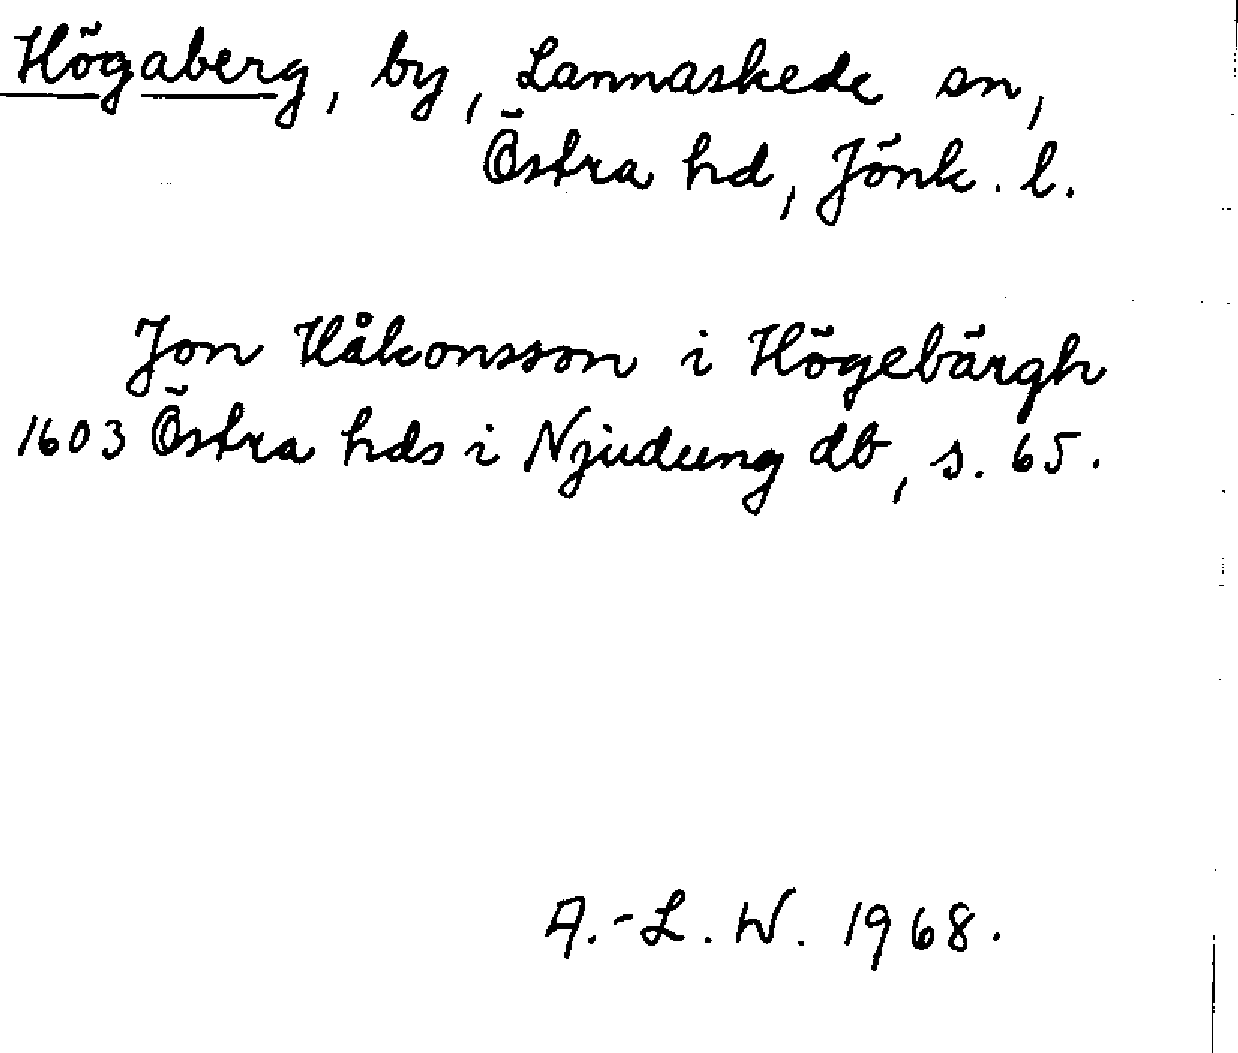 Högaberg, by, Lannaskede sn,
Östra hd, Jönk. l.
Jon Håkonsson i Högebärgh
1603 Östra hds i Njudung db, s. 65.
A.-L. W. 1968.